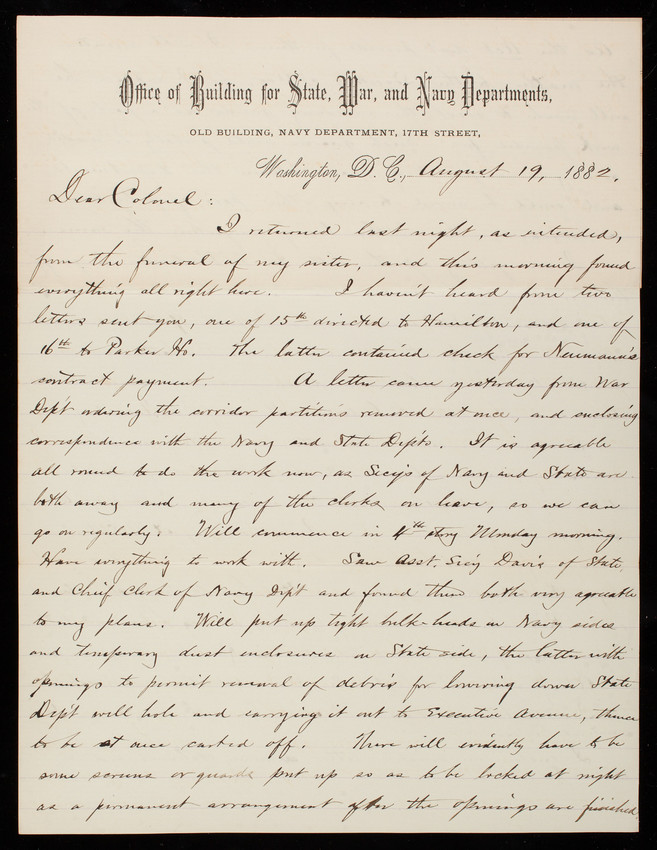 Office of Building for State, War, and Navy Departments,
OLD BUILDING, NAVY DEPARTMENT, 17TH STREET,
Washington, D. C., August 19, 1882.
Dear Colonel:
I returned last night, as intended,
from the funeral of my sister, and this morning found
everything all right here. I haven't heard from two
letters sent you, one of 15th directed to Hamilton, and one of
16th to Parker Ho. The latter contained check for Neumann's
contract payment. A letter came yesterday from War
Dep't ordering the corridor partitions removed at once, and enclosing
correspondence with the Navy and State Dep'ts. It is agreeable
all round to do the work now, as Sec'ys of Navy and State are
both away and many of the clerks on leave, so we can
go on regularly. Will commence in 4th story Monday morning.
Have everything to work with. Saw Asst. Sec'y Davis of State
and Chief Clerk of Navy Dep't and found them both very agreeable
to my plans. Will put up tight bulk-heads on Navy sides
and temporary dust enclosures on State side, the latter with
openings to permit removal of debris for lowering down State
Dep't well hole and carrying it out to Executive Avenue, thence
to be at once carted off. There will evidently have to be
some screens or guards put up so as to be locked at night
as a permanent arrangement after the openings are finished.